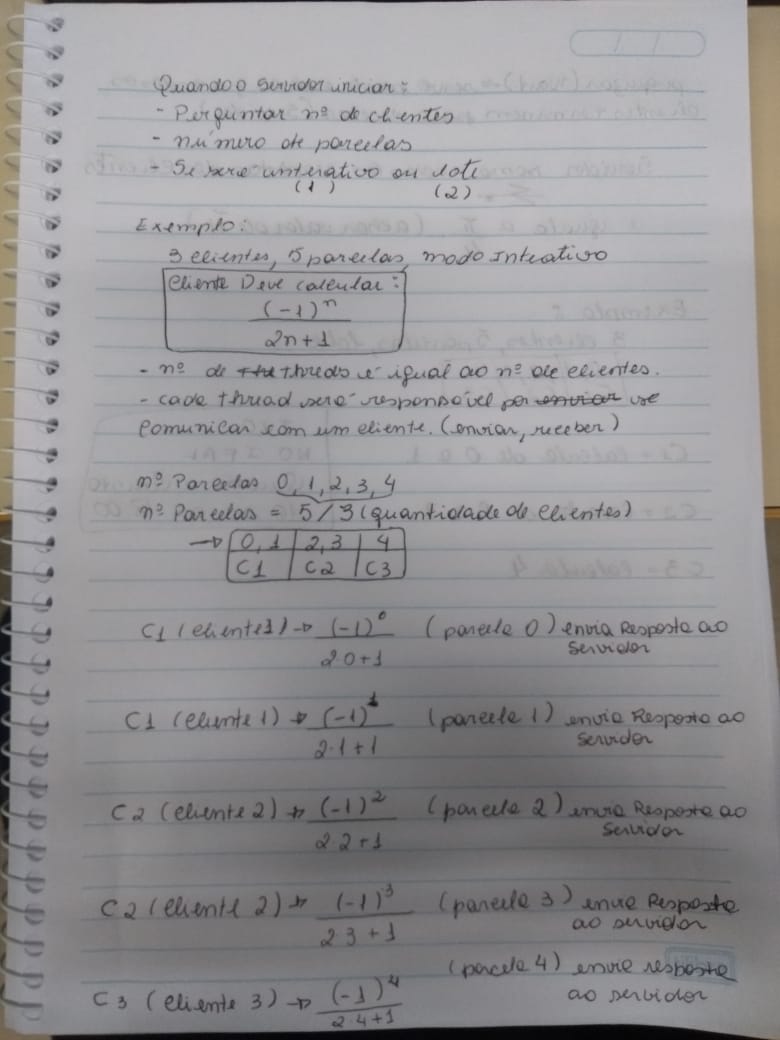 Quando o servidor iniciar:
- Perguntar nº de clientes
- número de parcelas
- Se será interativo ou lote
(1) (2)
Exemplo:
3 clientes, 5 parcelas, modo Inteativo
Cliente Deve calcular:
(-1)^n
2n+1
- nº de threds é igual ao nº de clientes.
- cada thread será responsável por enviar se
comunicar com um cliente. (enviar, receber)
nº Parcelas 0, 1, 2, 3, 4
nº Parcelas = 5/3 (quantidade de clientes)
→ 0, 1 | 2, 3 | 4
C1 | C2 | C3
C1 (cliente 1) → (-1)^0 (parcela 0) envia Resposta ao
2·0+1 Servidor
C1 (cliente 1) → (-1)^1 (parcela 1) envia Resposta ao
2·1+1 Servidor
C2 (cliente 2) → (-1)^2 (parcela 2) envia Resposta ao
2·2+1 Servidor
C2 (cliente 2) → (-1)^3 (parcela 3) envia Resposta
2·3+1 ao servidor
C3 (cliente 3) → (-1)^4 (parcela 4) envia resposta
2·4+1 ao servidor